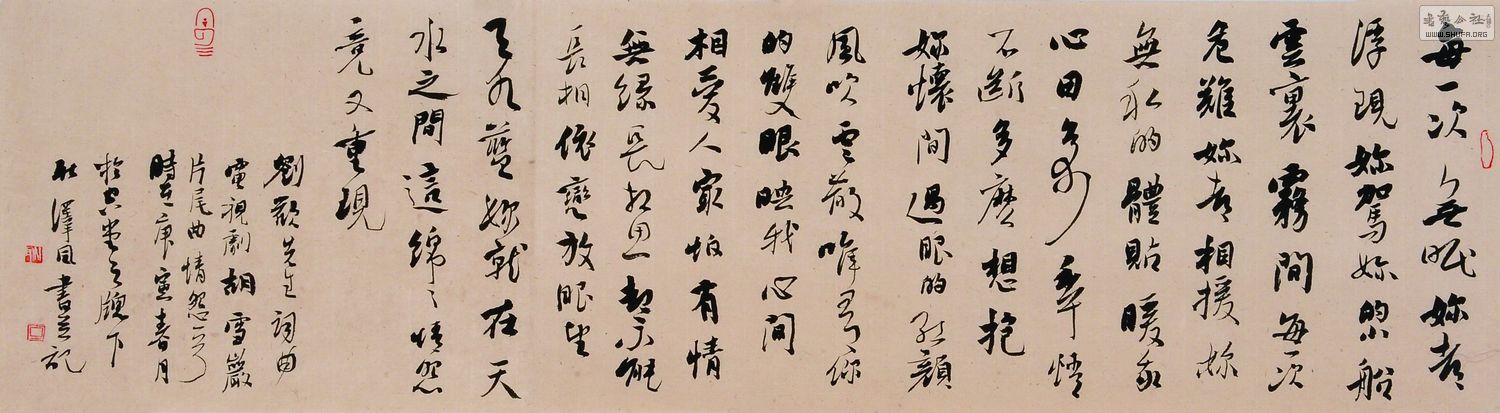 每一次無眠妳都
浮現妳駕妳的船
雲裏霧間每次
危難妳都相援妳
無私的體貼暖我
心田多少情
不斷多麽想抱
妳懷間過眼的紅顏
風吹雲散唯有你
的雙眼映我心間
相愛人最怕有情
無緣長相思却不能
長相依戀放眼望
天藍妳就在天
水之間這綿々情怨
竟又重現
劉歡先生詞曲
電視劇胡雪巖
片尾曲情怨一首
時在庚寅春月
於堂之牕下
澤同書並記
書藝公社
WWW.SHUFA.ORG